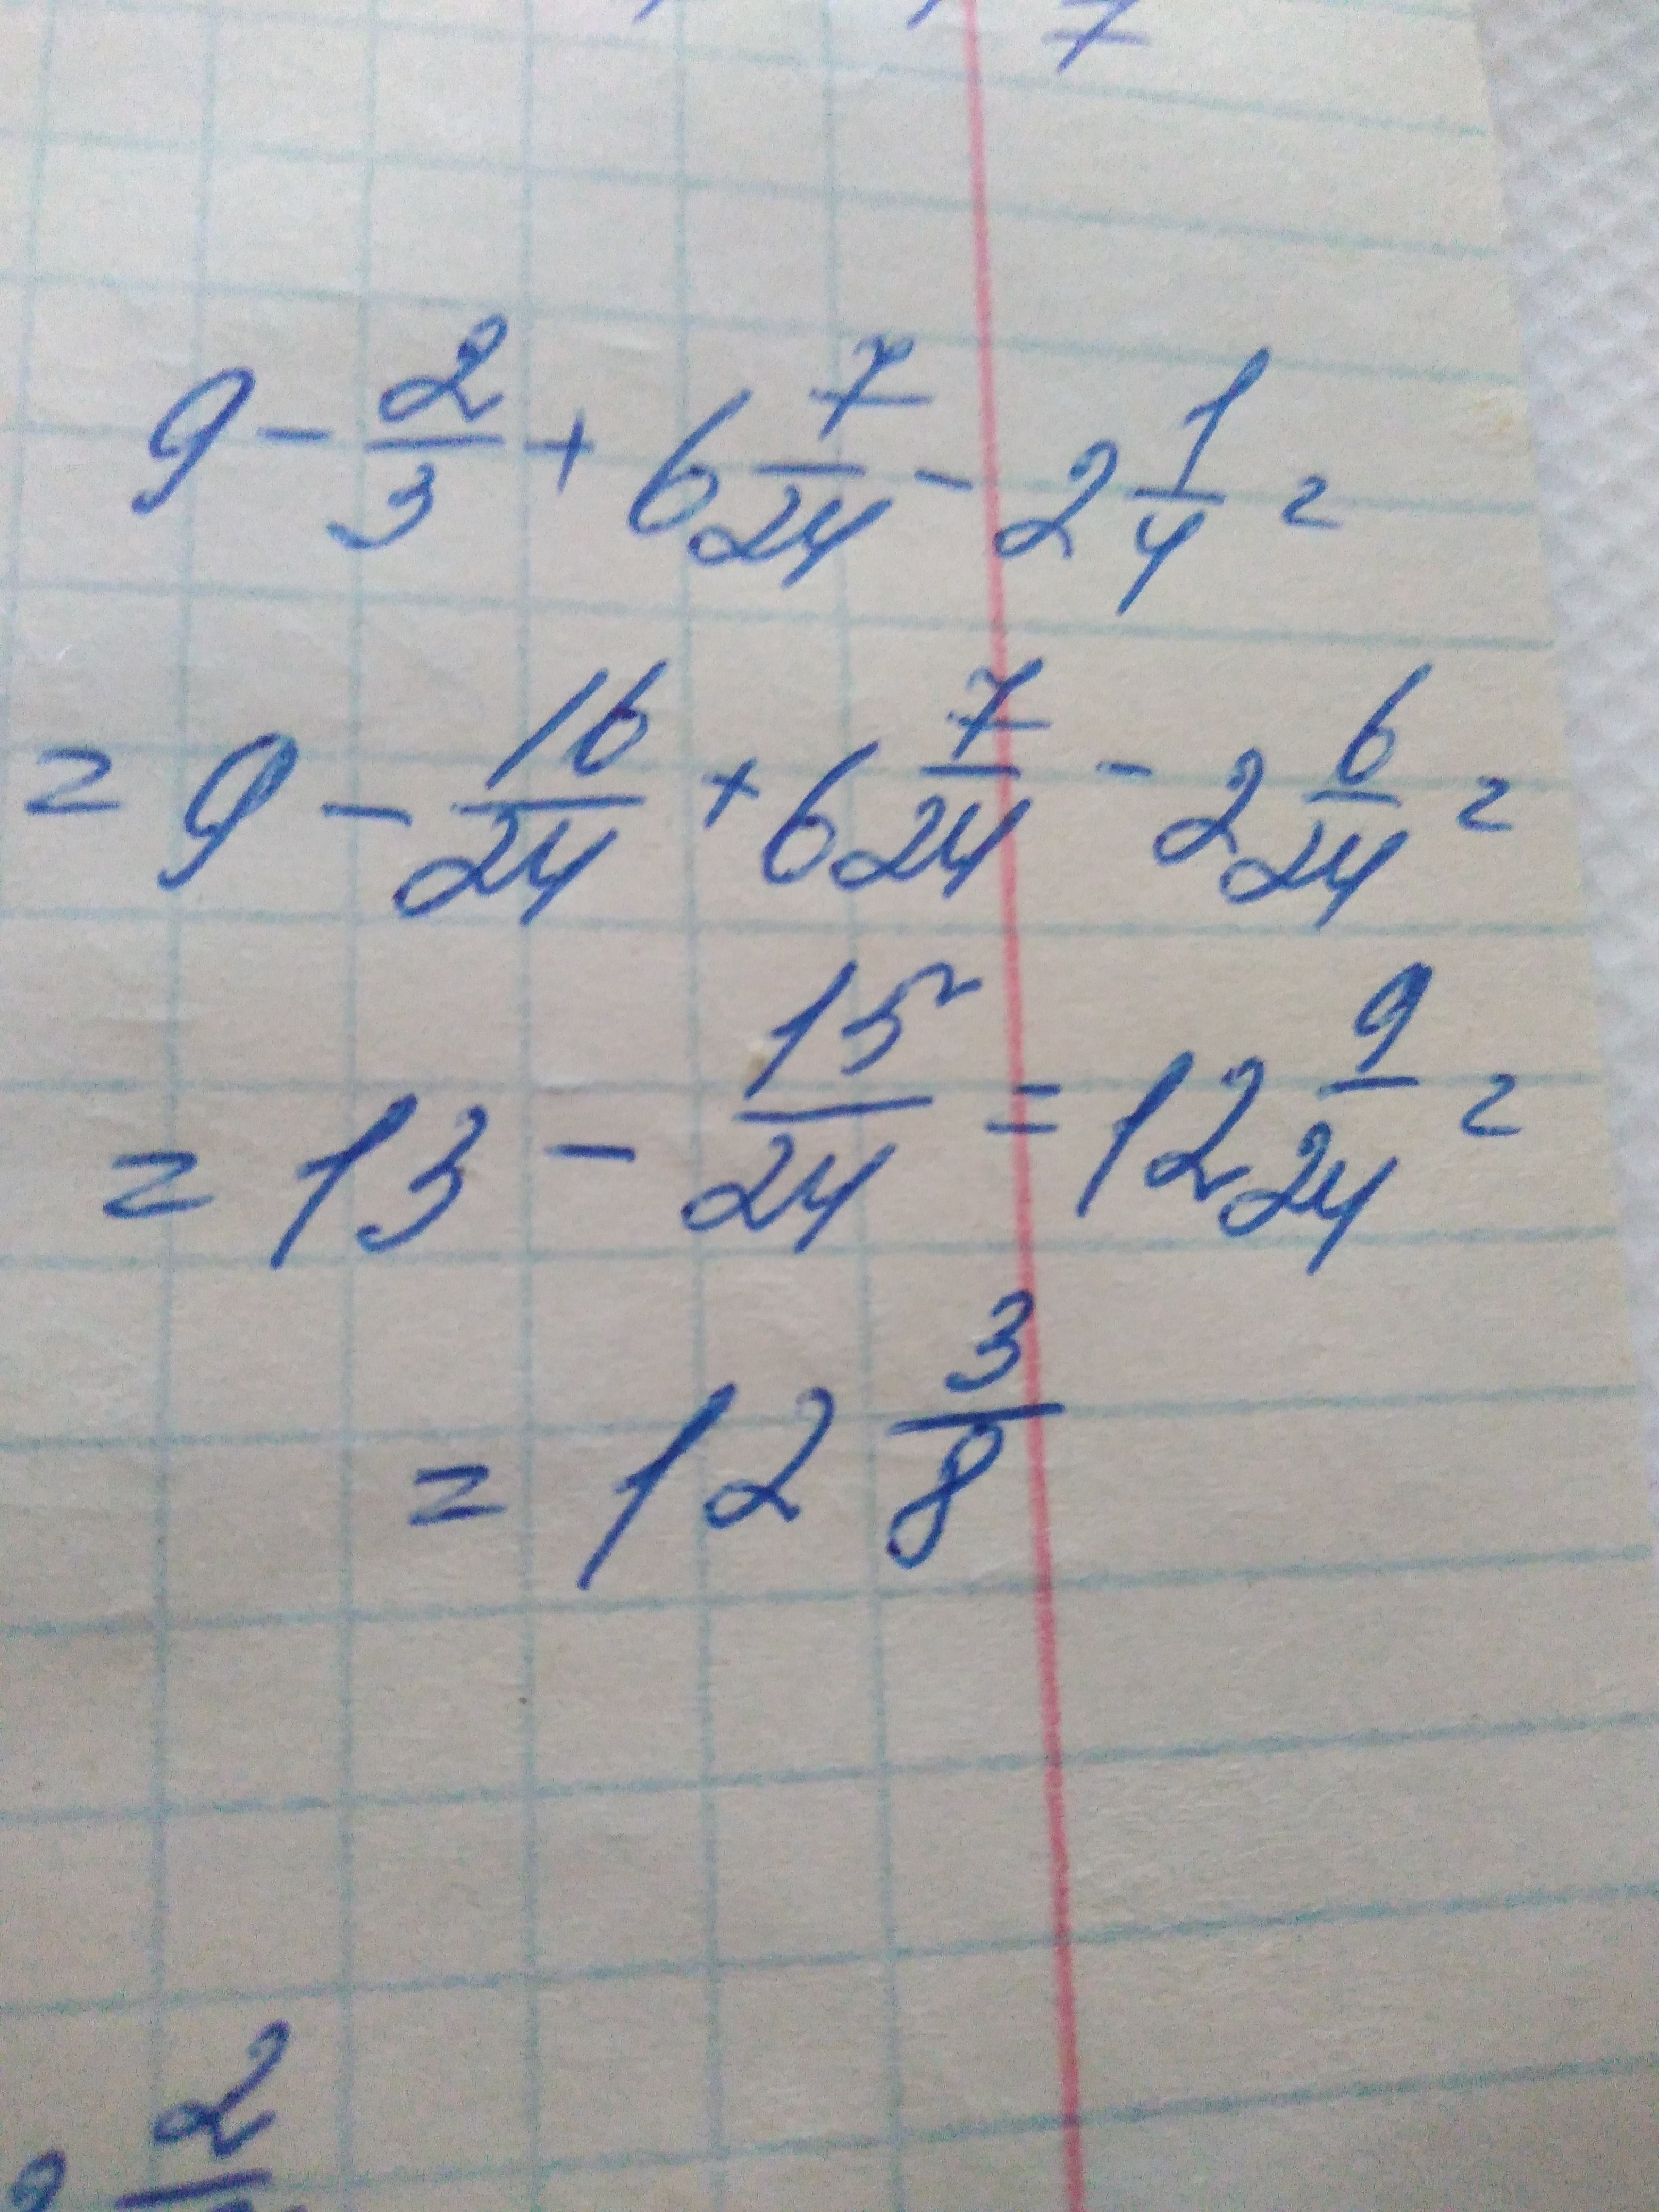 7
9 - 2/3 + 6 7/24 - 2 1/4 =
= 9 - 16/24 + 6 7/24 - 2 6/24 =
= 13 - 15/24 = 12 9/24 =
= 12 3/8
2